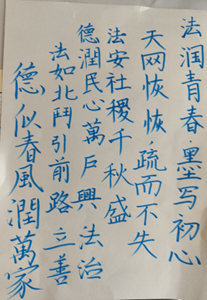 法润青春·墨写初心
天网恢恢·疏而不失
法安社稷千秋盛
德潤民心萬戶興 法治
法如北鬥引前路 立善
德似春風潤萬家